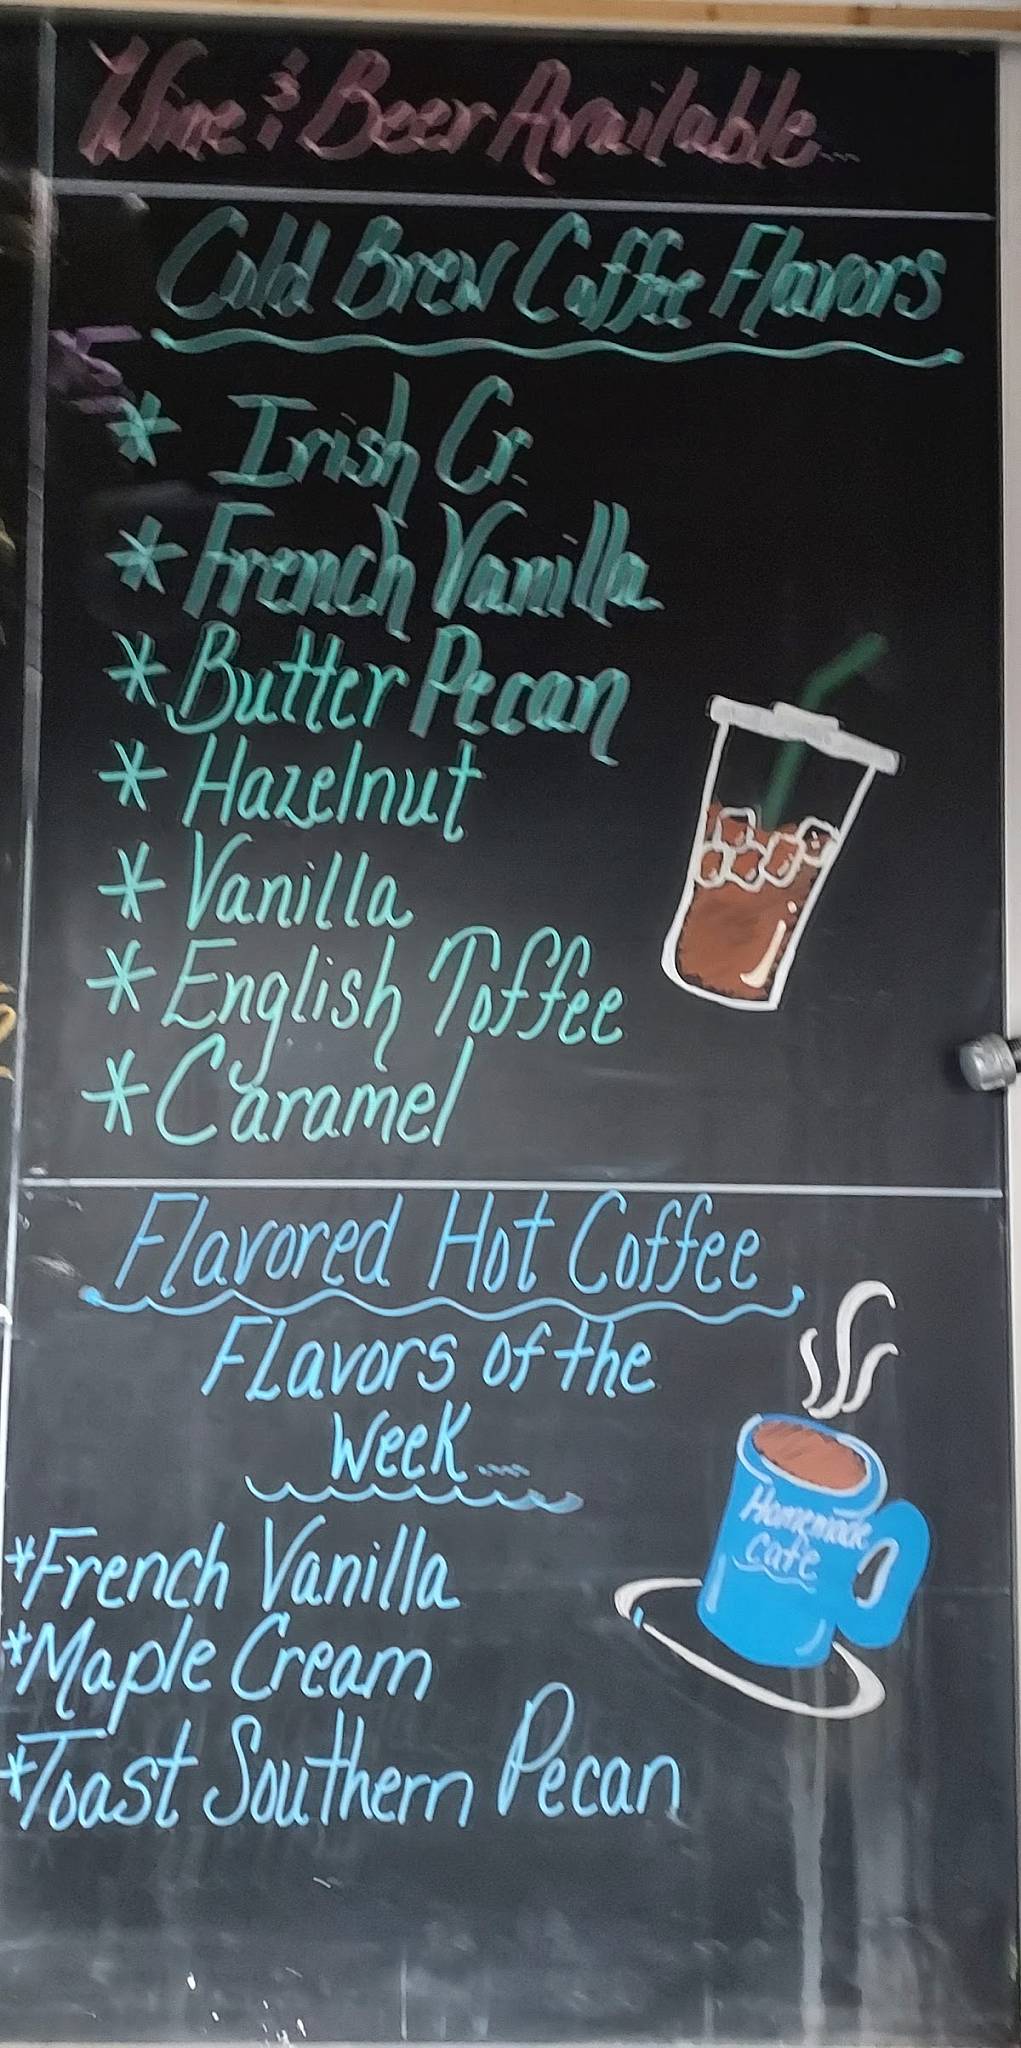 Wine & Beer Available...
Cold Brew Coffee Flavors
* Irish Cr.
* French Vanilla
* Butter Pecan
* Hazelnut
* Vanilla
* English Toffee
* Caramel
Flavored Hot Coffee
FLavors of the
Week....
*French Vanilla
*Maple Cream
*Toast Southern Pecan
Homemade
cafe